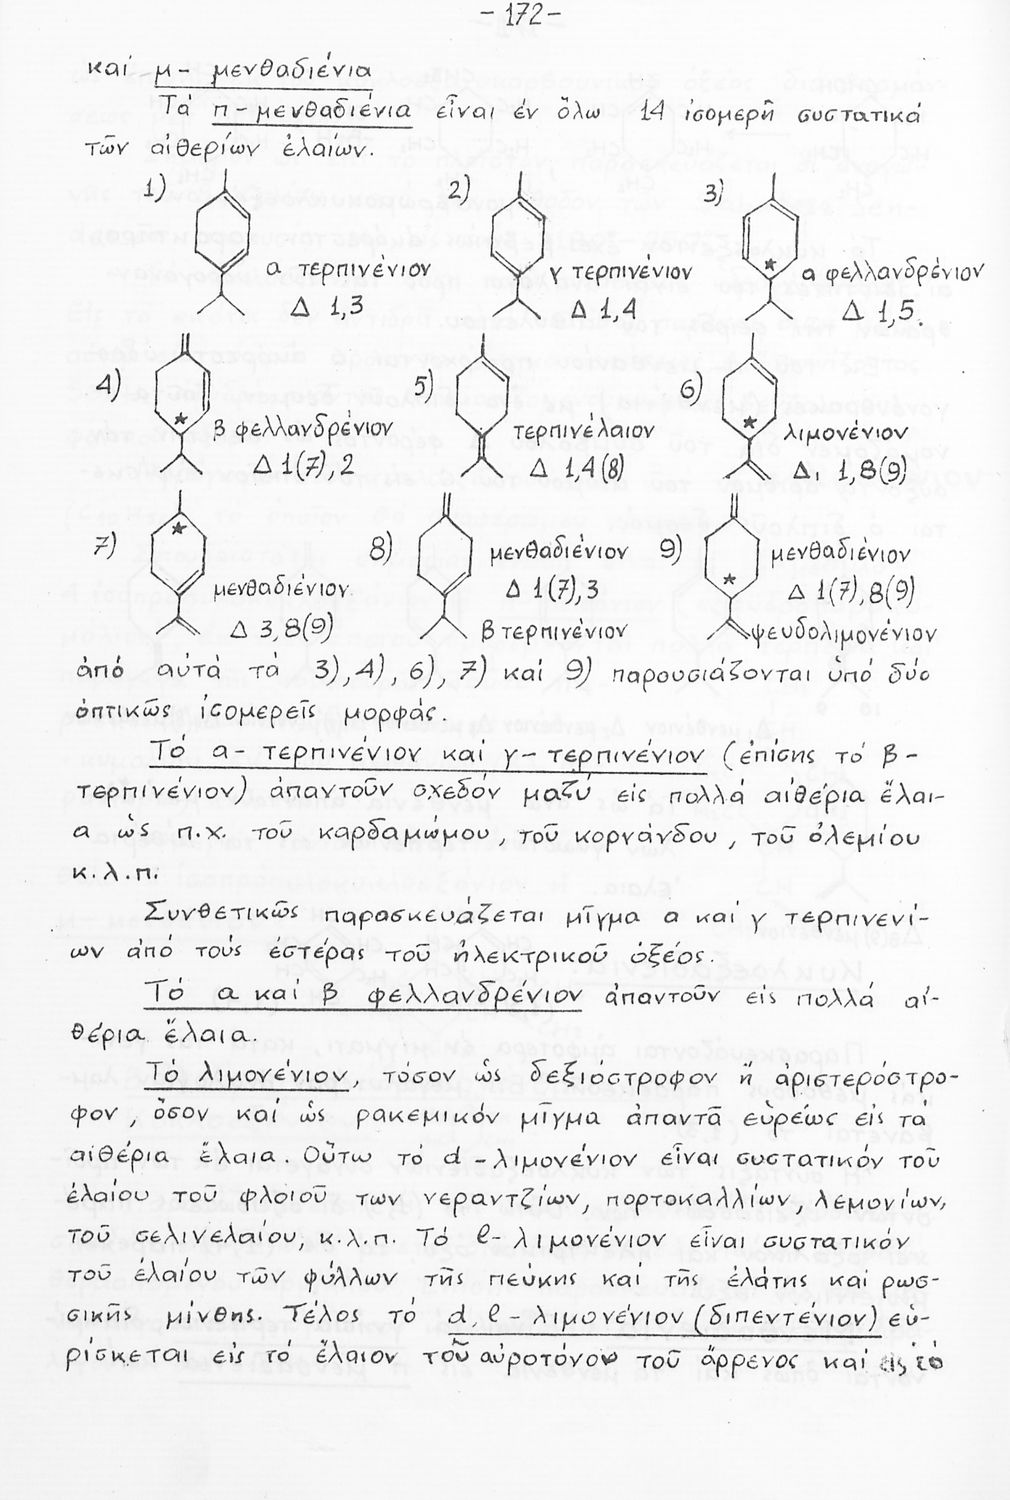 - 172 -
καί μ - μενθαδιένια
Τά π - μενθαδιένια εἶναι ἐν ὅλω 14 ἰσομερῆ συστατικά
τῶν αἰθερίων ἐλαίων.
1) 2) 3)
α τερπινένιον γ τερπινένιον α φελλανδρένιον
Δ 1,3 Δ 1,4 Δ 1,5.
4) 5) 6)
β φελλανδρένιον τερπινέλαιον λιμονένιον
Δ 1(7), 2 Δ 1,4(8) Δ, 1,8(9)
7) 8) μενθαδιένιον 9) μενθαδιένιον
μενθαδιένιον. Δ 1(7),3 Δ 1(7),8(9)
Δ 3,8(9) β τερπινένιον ψευδολιμονένιον
ἀπό αὐτά τά 3), 4), 6), 7) καί 9) παρουσιάζονται ὑπό δύο
ὀπτικῶς ἰσομερεῖς μορφάς.
Τό α - τερπινένιον καί γ - τερπινένιον (ἐπίσης τό β -
τερπινένιον) ἀπαντοῦν σχεδόν μαζύ εἰς πολλά αἰθέρια ἔλαι-
α ὡς π.χ. τοῦ καρδαμώμου, τοῦ κορνάνδου, τοῦ ὀλεμίου
κ.λ.π.
Συνθετικῶς παρασκευάζεται μῖγμα α καί γ τερπινενί-
ων ἀπό τούς ἐστέρας τοῦ ἠλεκτρικοῦ ὀξέος.
Τό α καί β φελλανδρένιον ἀπαντοῦν εἰς πολλά αἰ-
θέρια ἔλαια.
Τό λιμονένιον, τόσον ὡς δεξιόστροφον ἤ ἀριστερόστρο-
φον, ὅσον καί ὡς ρακεμικόν μῖγμα ἀπαντᾶ εὐρέως εἰς τά
αἰθέρια ἔλαια. Οὕτω τό d - λιμονένιον εἶναι συστατικόν τοῦ
ἐλαίου τοῦ φλοιοῦ των νεραντζίων, πορτοκαλλίων, λεμονίων,
τοῦ σελινελαίου, κ.λ.π. Τό ℓ - λιμονένιον εἶναι συστατικόν
τοῦ ἐλαίου τῶν φύλλων τῆς πεύκης καί τῆς ἐλάτης καί ρωσ-
σικῆς μίνθης. Τέλος τό d, ℓ - λιμονένιον (διπεντένιον) εὑ-
ρίσκεται εἰς τό ἔλαιον τοῦ αὐροτόνου τοῦ ἄρρενος καί εἰς τό